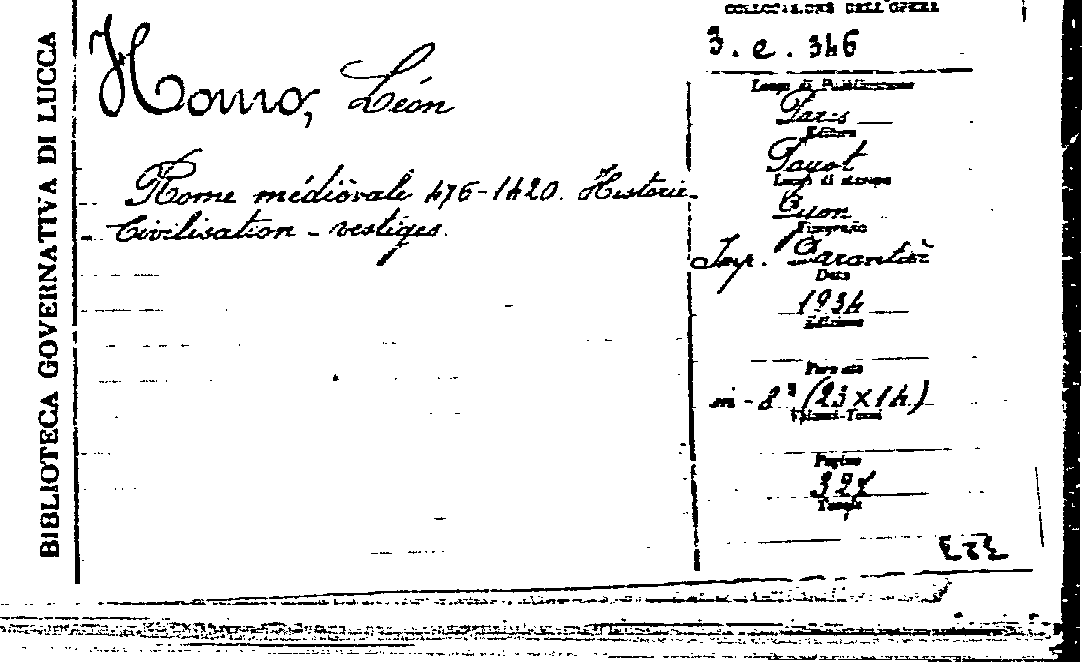 BIBLIOTECA GOVERNATIVA DI LUCCA
Homo, Léon
Rome médiévale 476-1420. Histoire-
Civilisation - vestiges.
COLLOCAZIONE DELL'OPERA
3. e. 346
Luogo di Pubblicazione
Paris
Editore
Payot
Luogo di stampa
Lyon
Tipografo
Imp. Darantiè
Data
1934
Edizione
Formato
in-8° (23x14)
Volumi-Tomi
Pagine
Tavole